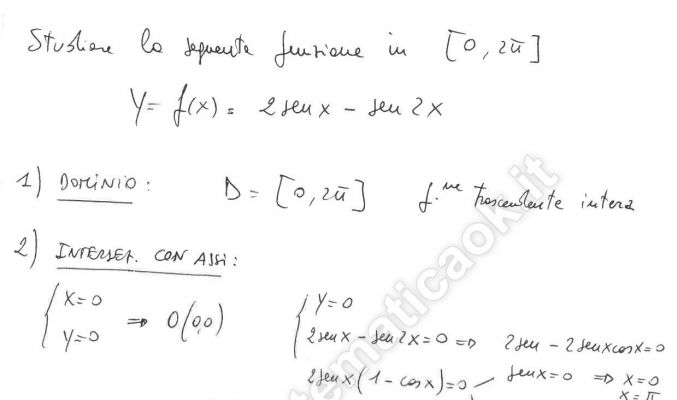 Studiare la seguente funzione in [0, 2π]
Y = f(x) = 2 sen x - sen 2x
1) DOMINIO: D = [0, 2π] f.ne trascendente intera
2) INTERSEZ. CON ASSI:
{ X=0 Y=0 ⇒ O(0,0)
{ Y=0 2senx - sen2x=0 ⇒ 2sen - 2senxcosx=0
2senx(1-cosx)=0 senx=0 ⇒ x=0
x=π
tematicaok.it